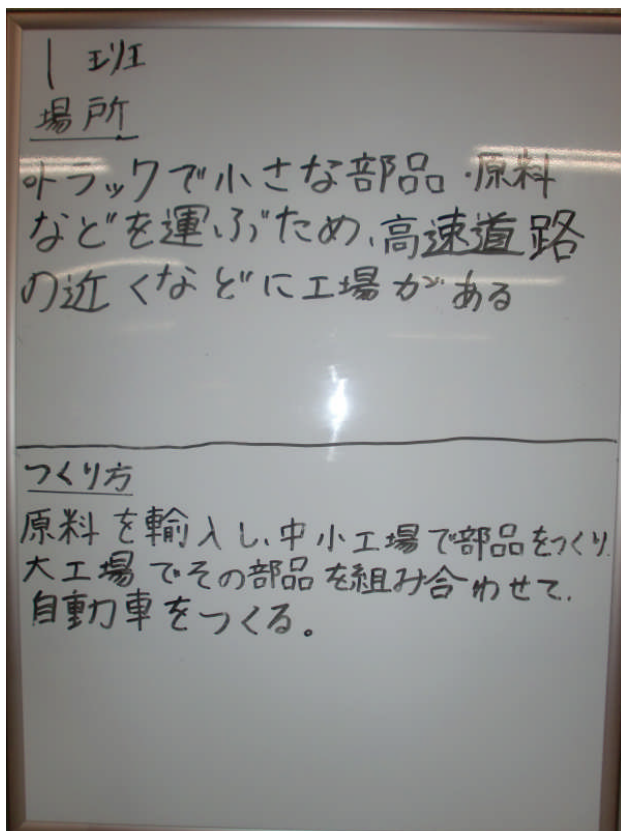 1 班
場所
トラックで小さな部品・原料
などを運ぶため、高速道路
の近くなどに工場がある
つくり方
原料を輸入し、中小工場で部品をつくり、
大工場でその部品を組み合わせて、
自動車をつくる。